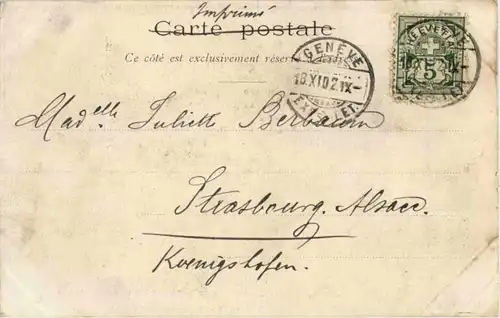 Imprimé
Carte postale
Ce côté est exclusivement réservé à l'adresse
GENÈVE
18.XI.02.IX–
EXP. LET.
5
Mad.elle Juliette Berbaum
Strasbourg. Alsace.
Koenigshofen.